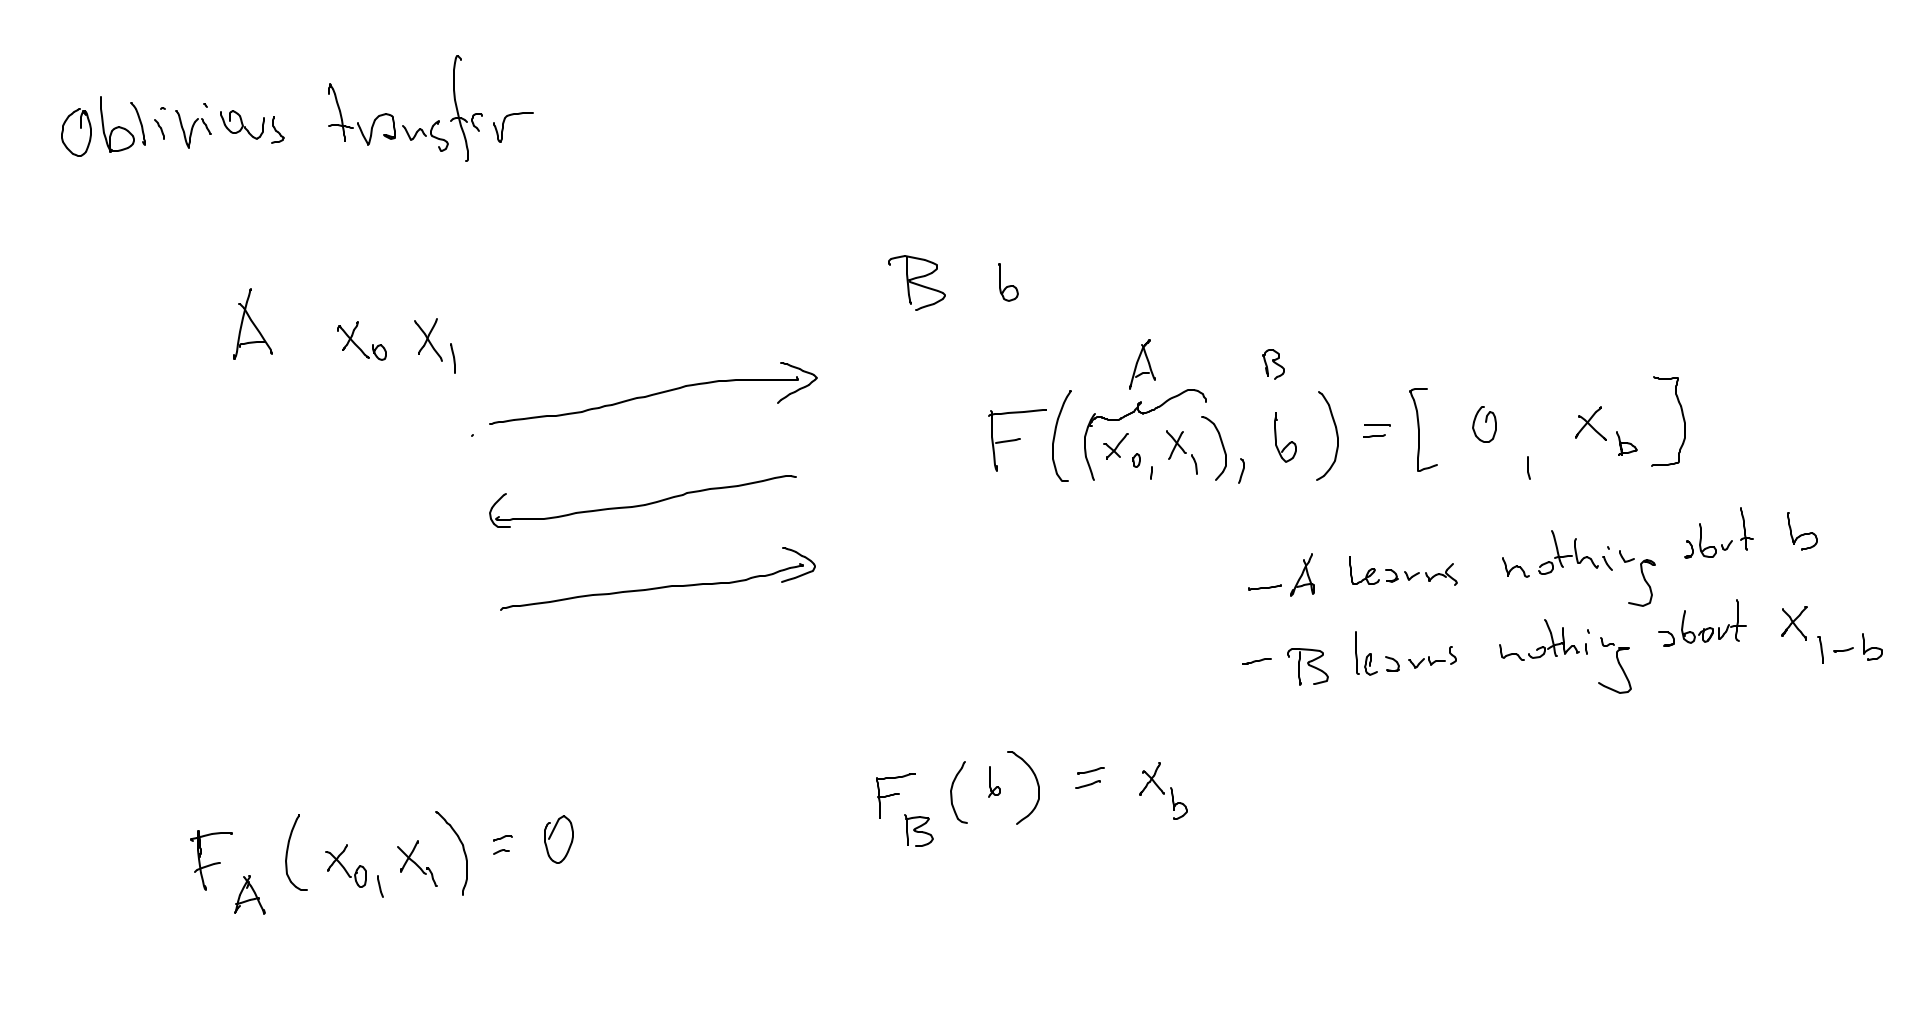 Oblivious transfer
B b
A x₀ x₁
A B
F((x₀, x₁), b) = [0, x_b]
- A learns nothing abut b
- B learns nothing about x_{1-b}
F_B(b) = x_b
F_A(x₀, x₁) = 0